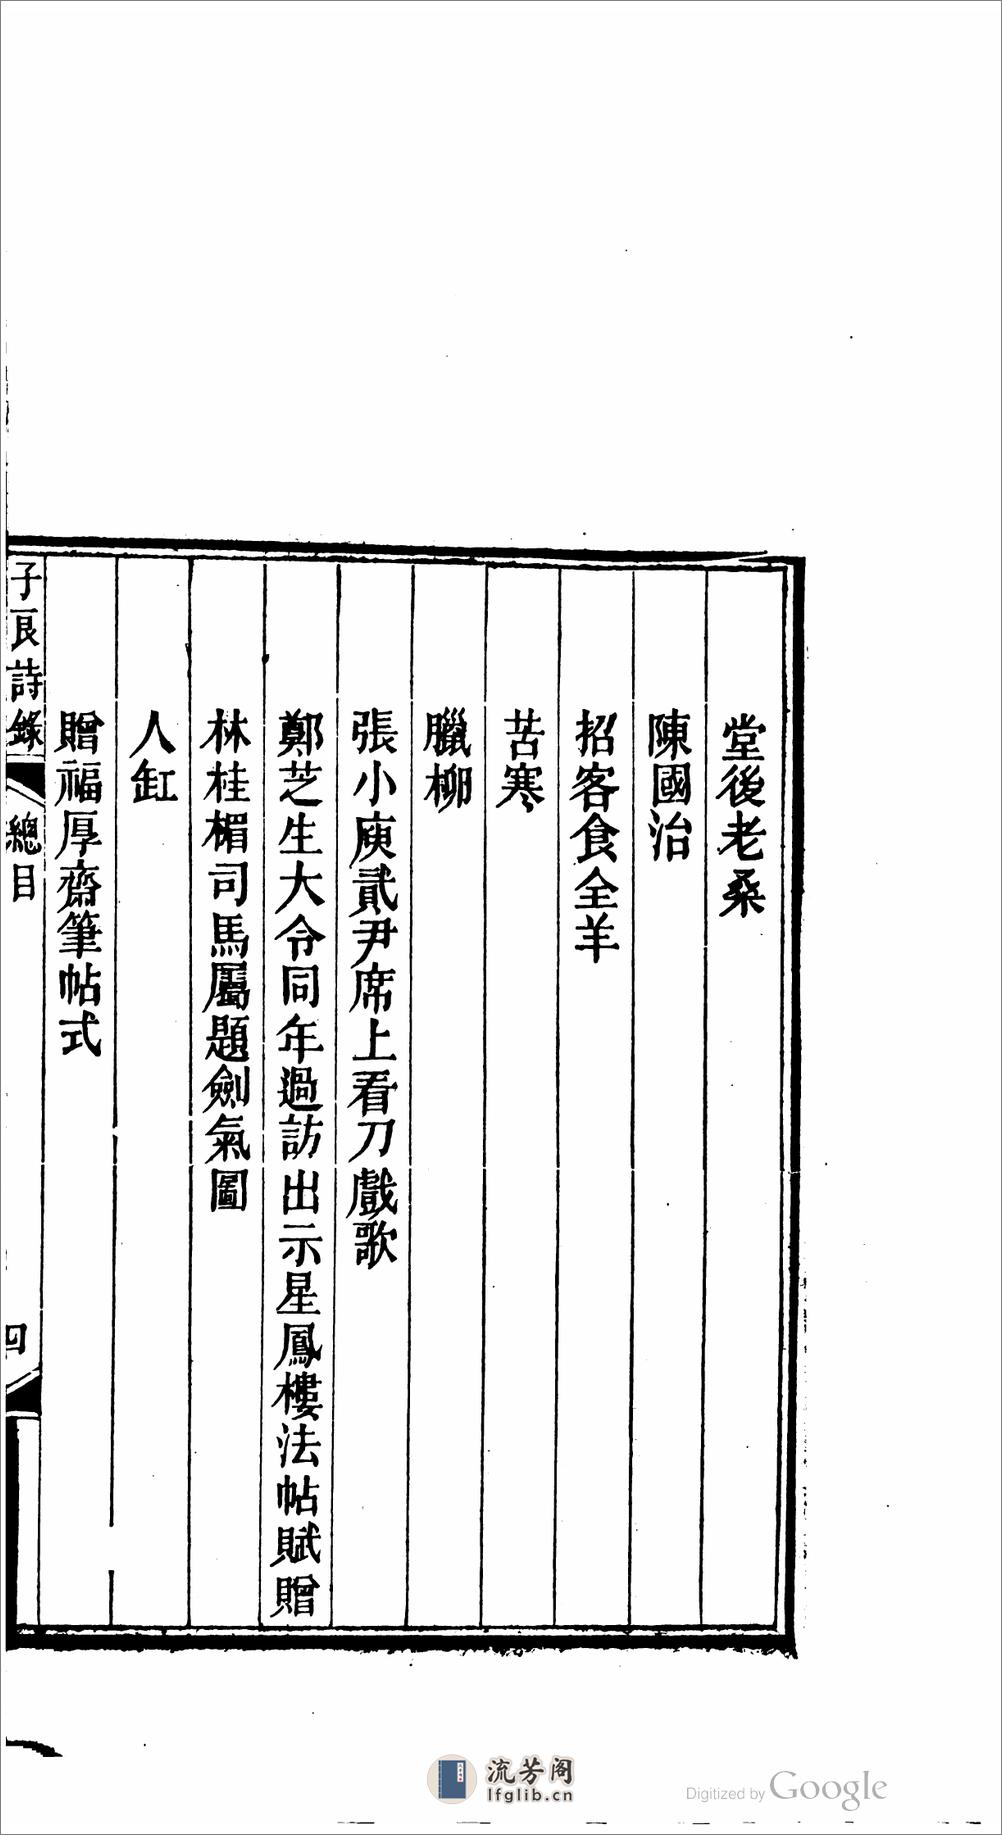 堂後老桑
陳國治
招客食全羊
苦寒
臘柳
張小庾貳尹席上看刀戲歌
鄭芝生大令同年過訪出示星鳳樓法帖賦贈
林桂楣司馬屬題劍氣圖
人缸
贈福厚齋筆帖式
子良詩錄
總目
四
流芳阁
lfglib.cn
Digitized by Google